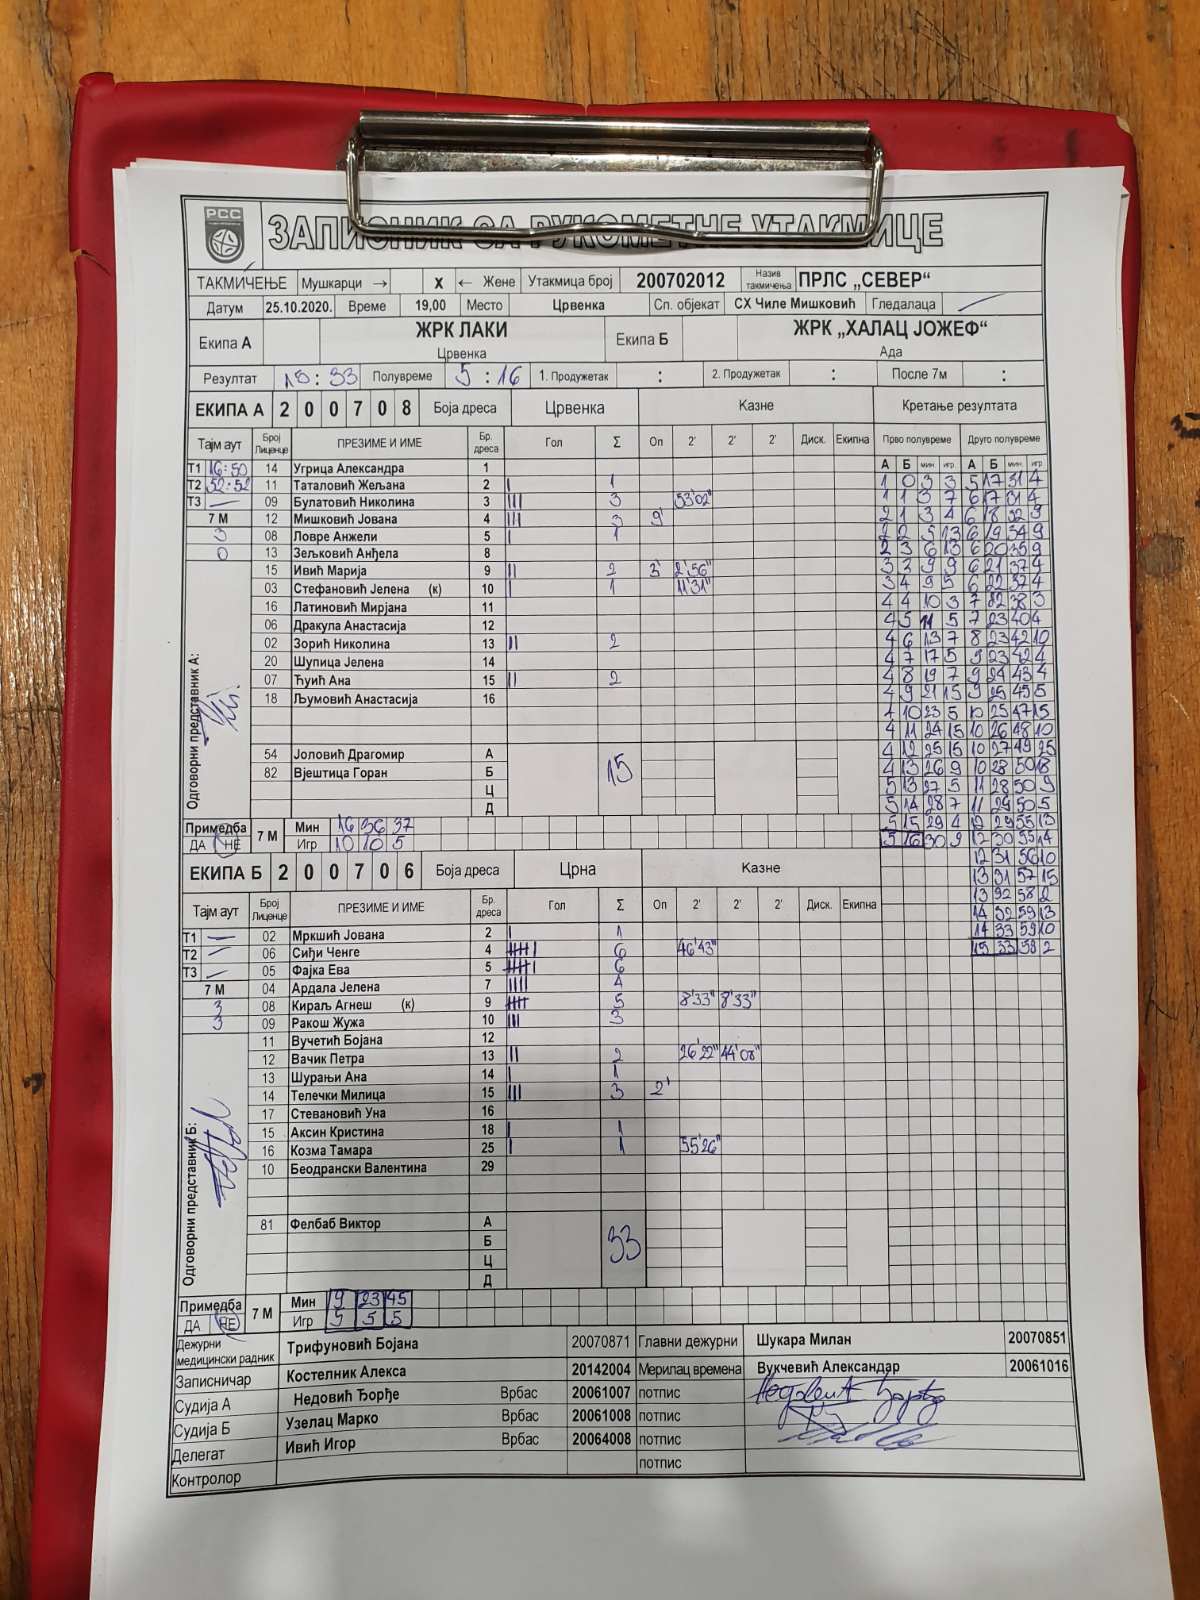 РСС
ЗАПИСНИК СА РУКОМЕТНЕ УТАКМИЦЕ
ТАКМИЧЕЊЕ Мушкарци → X ← Жене Утакмица број 200702012 Назив такмичења ПРЛС „СЕВЕР“
Датум 25.10.2020. Време 19,00 Место Црвенка Сп. објекат СХ Чиле Мишковић Гледалаца
Екипа А ЖРК ЛАКИ Црвенка Екипа Б ЖРК „ХАЛАЦ ЈОЖЕФ“ Ада
Резултат : 33 Полувреме 5 : 16 1. Продужетак : 2. Продужетак : После 7м :
ЕКИПА А 2 0 0 7 0 8 Боја дреса Црвенка Казне Кретање резултата
Тајм аут Број Лиценце ПРЕЗИМЕ И ИМЕ Бр. дреса Гол Σ Оп 2' 2' 2' Диск. Екипна Прво полувреме Друго полувреме
А Б мин игр А Б мин. игр
Т1 16:50 14 Угрица Александра 1 1 0 3 3 5 17 31 4
Т2 52:52 11 Таталовић Жељана 2 I 1 1 1 3 7 6 17 31 4
Т3 — 09 Булатовић Николина 3 III 3 53'02" 2 1 3 4 6 18 32 9
7 М 12 Мишковић Јована 4 III 3 9' 2 2 5 13 6 19 34 9
3 08 Ловре Анжели 5 I 1 2 3 6 13 6 20 35 9
0 13 Зељковић Анђела 8 3 3 9 9 6 21 37 4
15 Ивић Марија 9 II 2 3' 2'56" 3 4 9 5 6 22 37 4
03 Стефановић Јелена (к) 10 I 1 11'31" 4 4 10 3 7 22 38 3
16 Латиновић Мирјана 11 4 5 11 5 7 23 40 4
06 Дракула Анастасија 12 4 6 13 7 8 23 42 10
02 Зорић Николина 13 II 2 4 7 17 5 9 23 42 4
20 Шупица Јелена 14 4 8 19 7 9 24 43 4
07 Ђуић Ана 15 II 2 4 9 21 15 9 25 45 5
18 Љумовић Анастасија 16 4 10 23 5 10 25 47 15
4 11 24 15 10 26 48 10
54 Јоловић Драгомир А 15 4 12 25 15 10 27 49 25
82 Вјештица Горан Б 4 13 26 9 10 28 50 18
Ц 5 13 27 5 11 28 50 9
Д 5 14 28 7 11 29 50 5
Одговорни представник А:
Примедба 7 М Мин 16 36 37 5 15 29 4 12 29 55 13
ДА НЕ Игр 10 10 5 5 16 30 9 12 30 55 14
12 31 56 10
ЕКИПА Б 2 0 0 7 0 6 Боја дреса Црна Казне 13 31 57 15
13 32 58 2
Тајм аут Број Лиценце ПРЕЗИМЕ И ИМЕ Бр. дреса Гол Σ Оп 2' 2' 2' Диск. Екипна 14 32 59 13
Т1 — 02 Мркшић Јована 2 I 1 14 33 59 10
Т2 — 06 Сиђи Ченге 4 IIIII I 6 46'43" 15 33 59 2
Т3 — 05 Фајка Ева 5 IIIII I 6
7 М 04 Ардала Јелена 7 IIII 4
3 08 Кираљ Агнеш (к) 9 IIIII 5 8'33" 8'33"
3 09 Ракош Жужа 10 III 3
11 Вучетић Бојана 12
12 Вачик Петра 13 II 2 26'22" 44'08"
13 Шурањи Ана 14 I 1
14 Телечки Милица 15 III 3 2'
17 Стевановић Уна 16
15 Аксин Кристина 18 I 1
16 Козма Тамара 25 I 1 55'26"
10 Беодрански Валентина 29
81 Фелбаб Виктор А 33
Б
Ц
Д
Одговорни представник Б:
Примедба 7 М Мин 9 23 45
ДА НЕ Игр 5 5 5
Дежурни медицински радник Трифуновић Бојана 20070871 Главни дежурни Шукара Милан 20070851
Записничар Костелник Алекса 20142004 Мерилац времена Вукчевић Александар 20061016
Судија А Недовић Ђорђе Врбас 20061007 потпис
Судија Б Узелац Марко Врбас 20061008 потпис
Делегат Ивић Игор Врбас 20064008 потпис
Контролор потпис